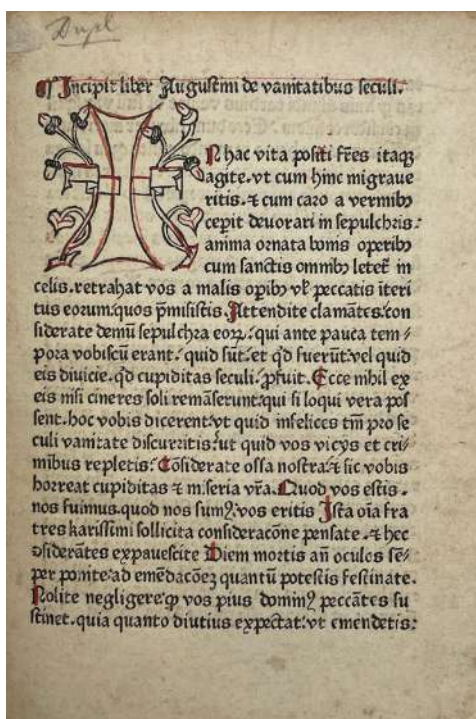 Dupl
Incipit liber Augustini de vanitatibus seculi.
IN hac vita positi fr̄es itaqꝫ
agite. vt cum hinc migraue
ritis. ⁊ cum caro a vermibꝫ
cepit deuorari in sepulchris:
anima ornata bonis operibꝫ
cum sanctis omnibꝫ letet᷑ in
celis. retrahat vos a malis opibꝫ vl̓ peccatis iteri
tus eorum. quos p̄misistis. Attendite clamātes: con
siderate demū sepulchra eoꝝ. qui ante pauca tem⸗
pora vobiscū erant. quid sūt. et qd̓ fuerūt. vel quid
eis diuicie. qd̓ cupiditas seculi. ꝓfuit. Ecce nihil ex
eis nisi cineres soli remāserunt. qui si loqui vera pos
sent. hoc vobis dicerent. vt quid infelices tm̄ pro se
culi vanitate discurritis. ut quid vos vicijs et cri
minibus repletis. Cōsiderate ossa nostra. ⁊ sic vobis
horreat cupiditas ⁊ miseria vr̄a. Quod vos estis.
nos fuimus. quod nos sumꝰ. vos eritis Ista oīa fra
tres karissimi sollicita consideracōne pensate. ⁊ hec
ꝯsiderātes expauescite Diem mortis an̄ oculos sē⸗
per ponite. ad emēdacōeꝫ quantū potestis festinate.
Nolite negligere. qꝫ vos pius dominꝰ peccātes su
stinet. quia quanto diutius expectat. vt emendetis: